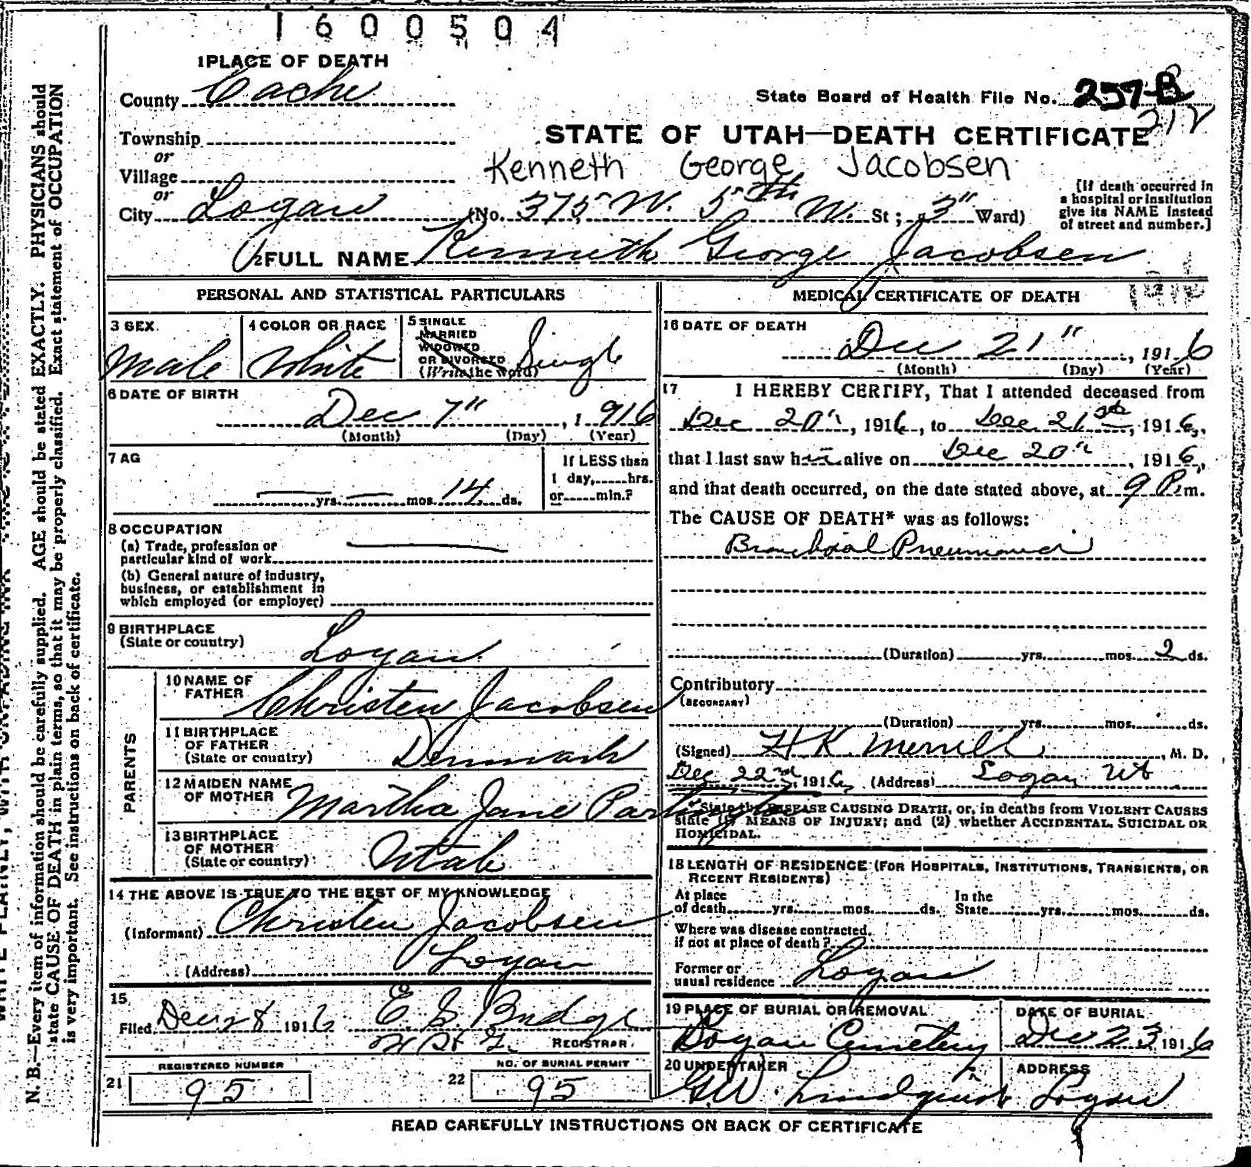 1600504
1 PLACE OF DEATH
County Cache
State Board of Health File No. 257-B
212
Township
or
STATE OF UTAH—DEATH CERTIFICATE
Village
Kenneth George Jacobsen
or
City Logan (No. 375 W. 5th W. St; 3" Ward)
[If death occurred in
a hospital or institution
give its NAME instead
of street and number.]
2 FULL NAME Kenneth George Jacobsen
PERSONAL AND STATISTICAL PARTICULARS
3 SEX
Male
4 COLOR OR RACE
White
5 SINGLE
MARRIED
WIDOWED
OR DIVORCED
(Write the word)
Single
6 DATE OF BIRTH
Dec 7", 1916
(Month) (Day) (Year)
7 AG
yrs. mos. 14 ds.
If LESS than
1 day, hrs.
or min.?
8 OCCUPATION
(a) Trade, profession or
particular kind of work
(b) General nature of industry,
business, or establishment in
which employed (or employer)
9 BIRTHPLACE
(State or country)
Logan
PARENTS
10 NAME OF
FATHER
Christen Jacobsen
11 BIRTHPLACE
OF FATHER
(State or country)
Denmark
12 MAIDEN NAME
OF MOTHER
Martha Jane
13 BIRTHPLACE
OF MOTHER
(State or country)
Utah
14 THE ABOVE IS TRUE TO THE BEST OF MY KNOWLEDGE
(Informant) Christen Jacobsen
(Address) Logan
15
Filed Dec 28 1916 E. S. Budge
REGISTRAR
REGISTERED NUMBER
21 95
NO. OF BURIAL PERMIT
22 95
MEDICAL CERTIFICATE OF DEATH
16 DATE OF DEATH
Dec 21", 1916
(Month) (Day) (Year)
17 I HEREBY CERTIFY, That I attended deceased from
Dec 20", 1916, to Dec 21st, 1916,
that I last saw him alive on Dec 20", 1916,
and that death occurred, on the date stated above, at 9 P.m.
The CAUSE OF DEATH* was as follows:
Bronchial Pneumonia
(Duration) yrs. mos. 2 ds.
Contributory
(SECONDARY)
(Duration) yrs. mos. ds.
(Signed) H K Merrill, M. D.
Dec 22nd 1916 (Address) Logan Ut
* State the DISEASE CAUSING DEATH, or, in deaths from VIOLENT CAUSES
state (1) MEANS OF INJURY; and (2) whether ACCIDENTAL, SUICIDAL OR
HOMICIDAL.
18 LENGTH OF RESIDENCE (FOR HOSPITALS, INSTITUTIONS, TRANSIENTS, OR
RECENT RESIDENTS)
At place
of death yrs. mos. ds.
In the
State yrs. mos. ds.
Where was disease contracted,
if not at place of death?
Former or
usual residence Logan
19 PLACE OF BURIAL OR REMOVAL
Logan Cemetery
DATE OF BURIAL
Dec 23 1916
20 UNDERTAKER
G.W. Lindquist
ADDRESS
Logan
READ CAREFULLY INSTRUCTIONS ON BACK OF CERTIFICATE
N. B.—Every item of information should be carefully supplied. AGE should be stated EXACTLY. PHYSICIANS should
state CAUSE OF DEATH in plain terms, so that it may be properly classified. Exact statement of OCCUPATION
is very important. See instructions on back of certificate.